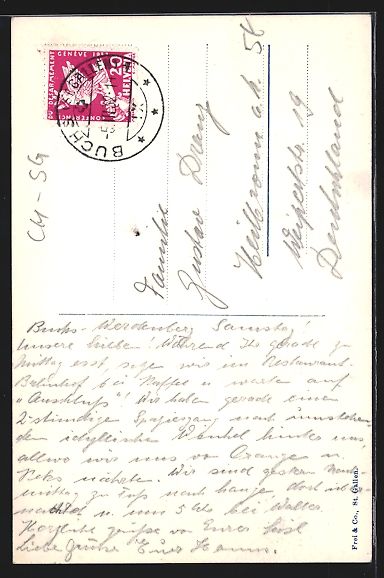 CONFERENCE DU DESARMEMENT GENÈVE 1932
HELVETIA
20
BUCHS (ST. GALLEN)
CH - SG
Familie
Gustav
Heilbronn a. N.
19
Deutschland
Buchs - Werdenberg Samstag!
Unsere Lieben! Während Ihr gerade zu
Mittag esst, sitzen wir im Restaurant
Bahnhof bei Kaffee u. warten auf
"Anschluß"! Wir haben gerade einen
2-stündige Spaziergang nach
den idyllische Winkel hinter uns,
allwo wir uns von Orangen u.
Keks nährten. Wir sind gestern
mittag zu Fuß nach
nachtet u. um 5 Uhr bei
Herzliche Grüße von Eurer
Liebe Grüße Euer Hanns.
Frei & Co., St. Gallen.